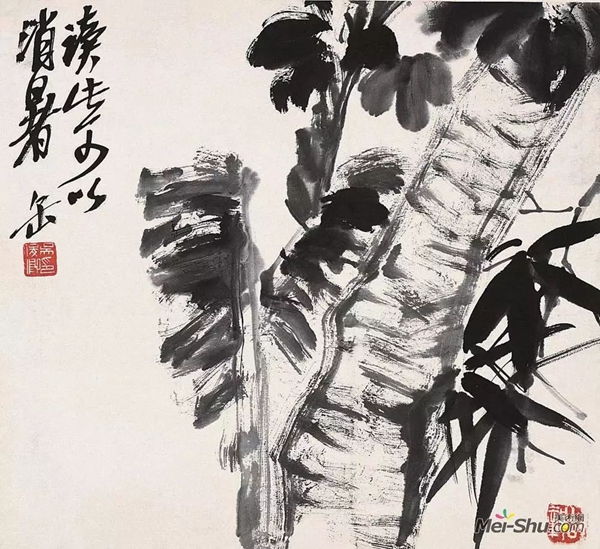 读此可以
消暑 缶
Mei-Shu.com